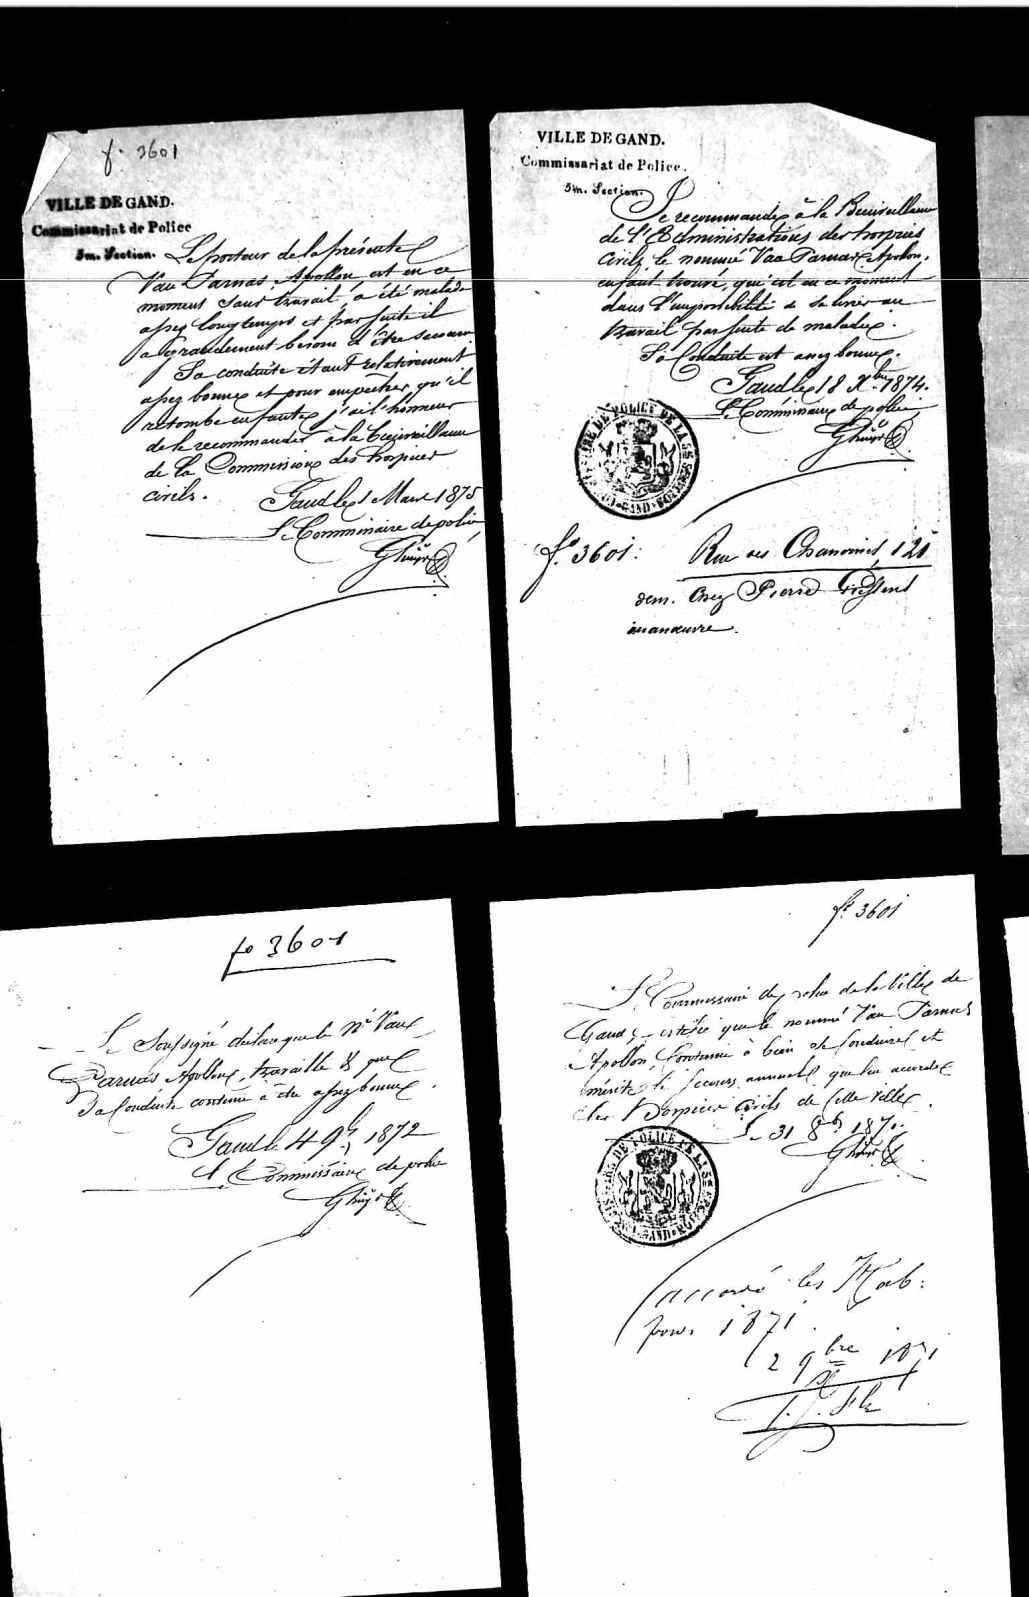 f. 3601
VILLE DE GAND.
Commissariat de Police
5m. Section.
Le porteur de la présente
Van Parnas Apollon est en ce
moment sans travail, a été malade
assez longtemps et par suite il
a grandement besoin d'être secouru
Sa conduite étant relativement
assez bonne et pour empêcher qu'il
retombe j'ai l'honneur
de le recommander à la bienveillance
de la Commission des hospices
civils.
Gand le 1 Mars 1875
Le Commissaire de police
VILLE DE GAND.
Commissariat de Police.
5m. Section.
Je recommande à la Bienveillance
de l'Administration des hospices
civils le nommé Van Parnas Apollon,
enfant trouvé, qui est en ce moment
dans l'impossibilité de se livrer au
travail par suite de maladie.
Sa Conduite est assez bonne.
Gand le 18 Xbre 1874.
Le Commissaire de police
COMMISSAIRE DE POLICE DE LA 5E SECTION
GAND
fo 3601.
Rue des Chanoines, 121
dem. chez Pierre
manœuvre.
fo 3601
Le Soussigné déclare que le né Van
Parnas Apollon, travaille & que
Sa Conduite continue à être assez bonne.
Gand le 4 9bre 1872
Le Commissaire de police
fo 3601
Le Commissaire de police de la Ville de
Gand certifie que le nommé Van Parnas
Apollon, Continue à bien se conduire et
mérite le secours annuel que lui accorde
les Hospices civils de cette ville.
Le 31 8bre 1871.
COMMISSAIRE DE POLICE DE LA 5E SECTION
GAND
accordé les Hab.
pour 1871.
2 9bre 1871